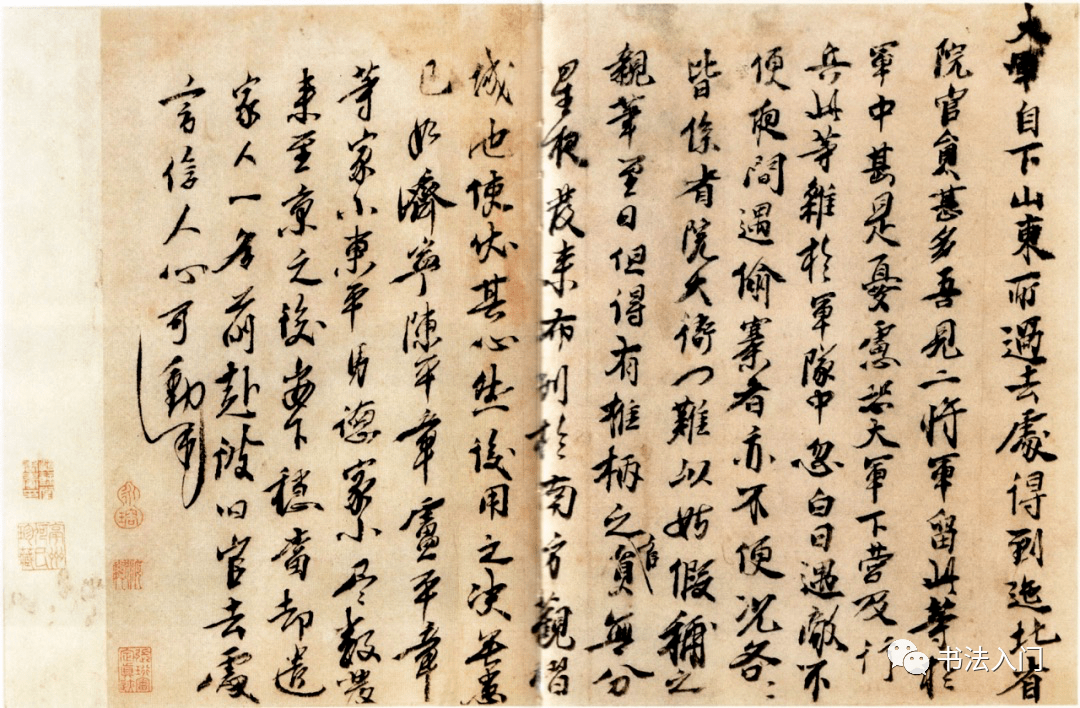 大軍自下山東所過去處得到迤北省
院官員甚多吾見二將軍留此等於
軍中甚是憂慮恐大軍下營及行
兵此等雜於軍隊中忽白日遇敵不
便夜間遇偷寨者亦不便況各〻
皆係省院大衙门難以姑假補之
親筆至日但得有權柄之官員無分
星夜發來布列於南方觀習
城池使伏其心然後用之決無患
已如濟寧陳平章盧平章
等家小東平馬德家小尽數發
來至京之後安下穩當却遣
家人一名前赴彼旧官去處
言信人心可動
书法入门